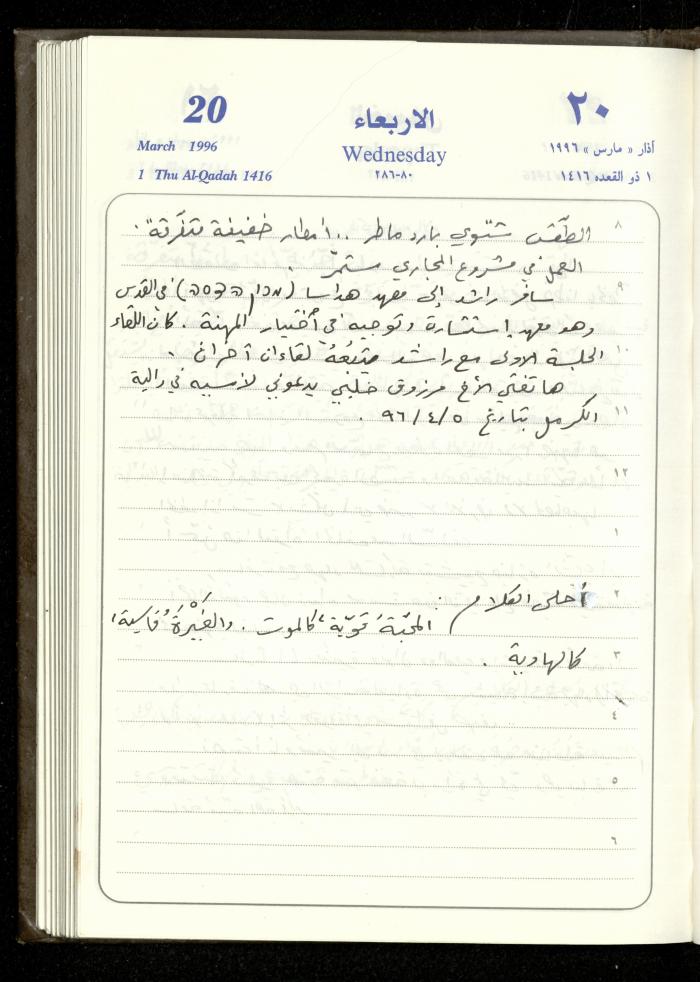 20
٢٠
الاربعاء
March 1996
آذار « مارس » ١٩٩٦
Wednesday
1 Thu Al-Qadah 1416
٢٨٦-٨٠
١ ذو القعده ١٤١٦
٨
الطّقس شتّوي بارد ماطر .. امطار خفيفة متفرّقة .
العمل في مشروع المجاري مستمرّ .
٩
سافر راشد إلى معهد هداسا (מכון הדסה) في القدس
وهو معهد إستشارة وتوجيه في أختيار المهنة . كان اللقاء
١٠
الجلسة الاولى مع راشد لقاءان آخران .
هاتفني الأخ مرزوق حلبي يدعوني لأمسيه في دالية
١١
الكرمل بتاريخ ٩٦/٤/٥ .
١٢
١
٢
أحلى الكلام :
المحبّةُ قويّة كالموت . والغَيْرَةُ قاسية
٣
كالهاوية .
٤
٥
٦